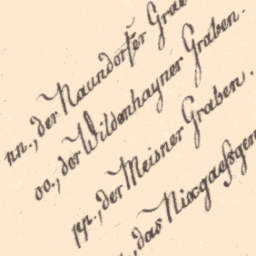 nn., der Naundorfer
oo., der Wildenhayner Graben.
pp., der Meisner Graben.
das